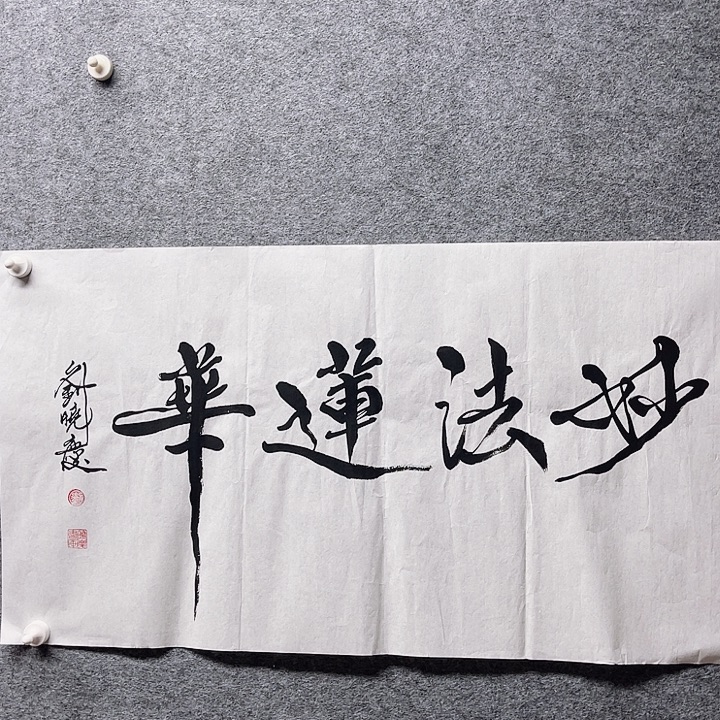 妙法蓮華
劉曉慶